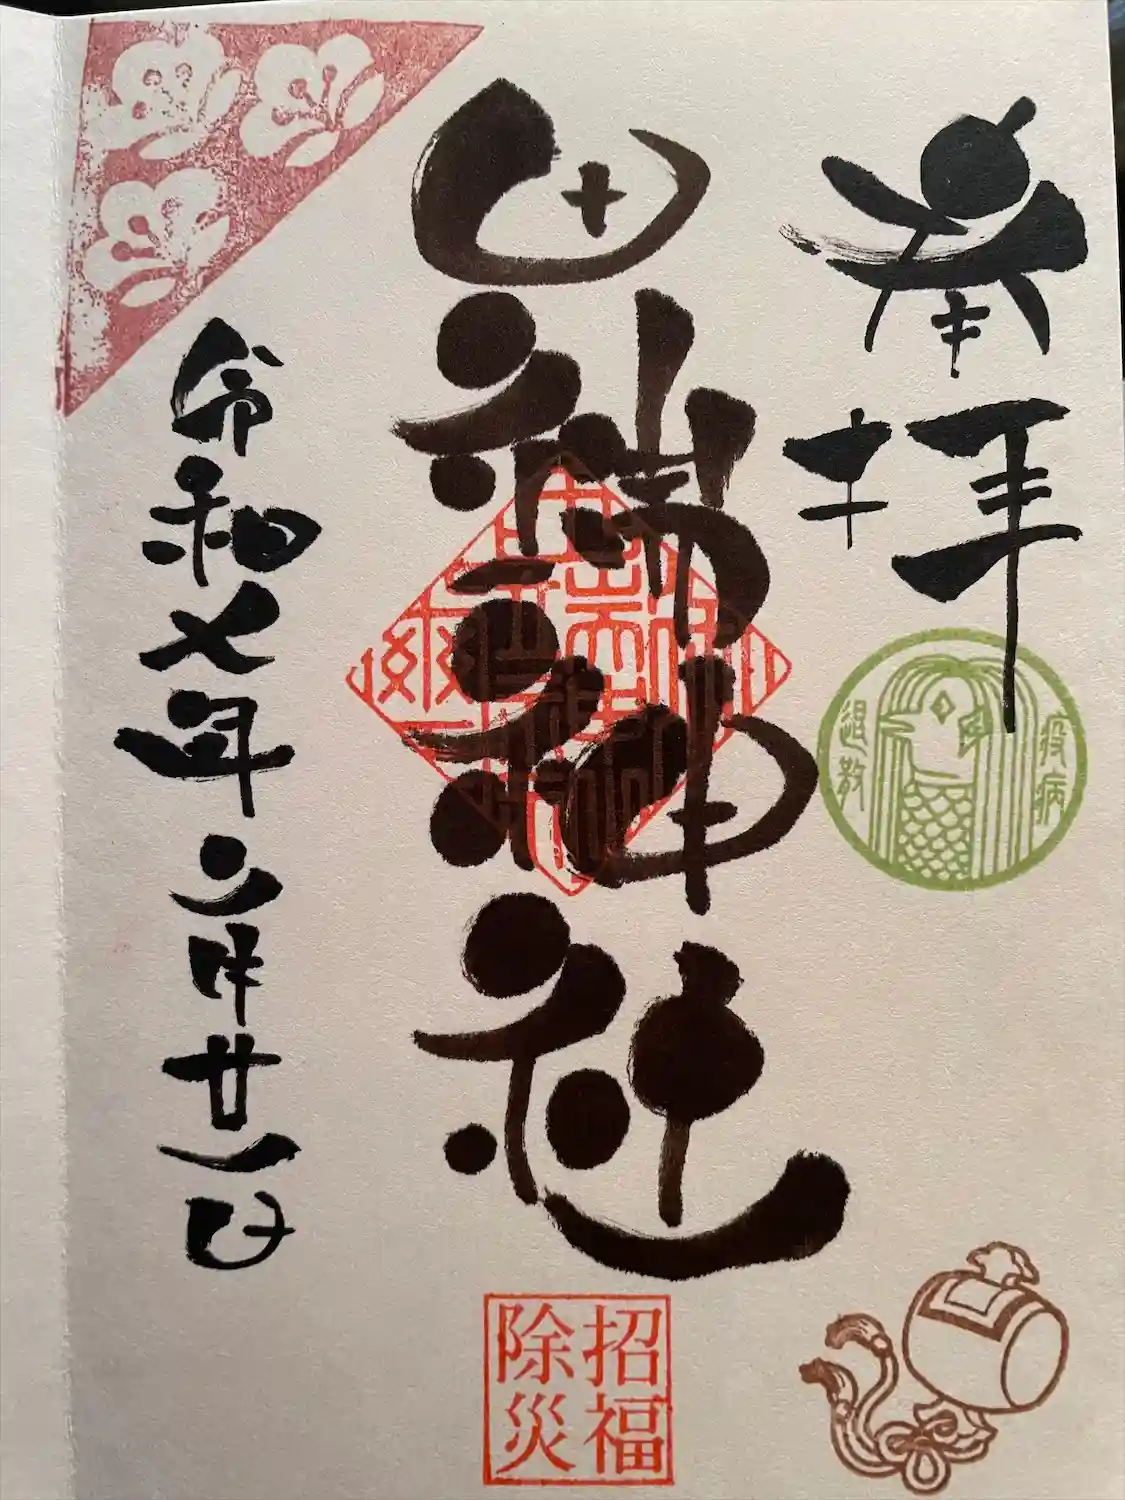 奉拝
疫病
退散
田端神社
招福
除災
令和七年三月廿一日